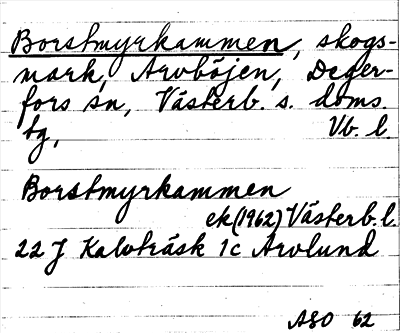 Borstmyrkammen, skogs-
mark, Arvböjen, Deger-
fors sn, Västerb. s. doms.
tg, Vb. l.
Borstmyrkammen
ek(1962) Västerb. l.
22 J Kalvträsk 1c Arvlund
ASO 62